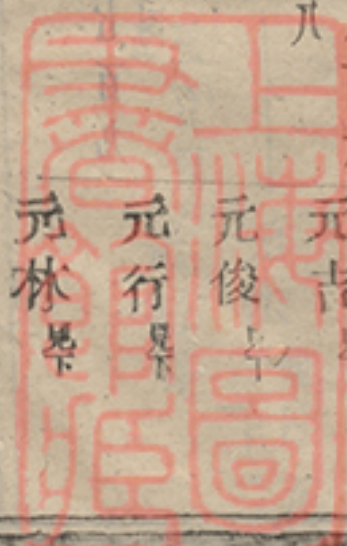 八
元吉
元俊
元行見下
元林見下
上海圖
書館